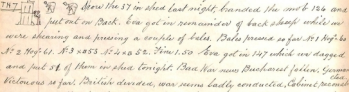 THT Shore the 57 in shed last night, branded the mob 126 and
put out in Back. Eva got in remainder of back sheep while we
were shearing and pressing a couple of bales. Bales pressed so far No 1 Hogt 61
No 2 Hogt 61. No 3 x a 53 No 4 x a 52. Fine 1.50 Eva got in 147 which we dagged
and put 54 of them in shed tonight. Bad War news Bucharest fallen, Germans
Victorious so far, British divided, war seems badly conducted, Cabinet